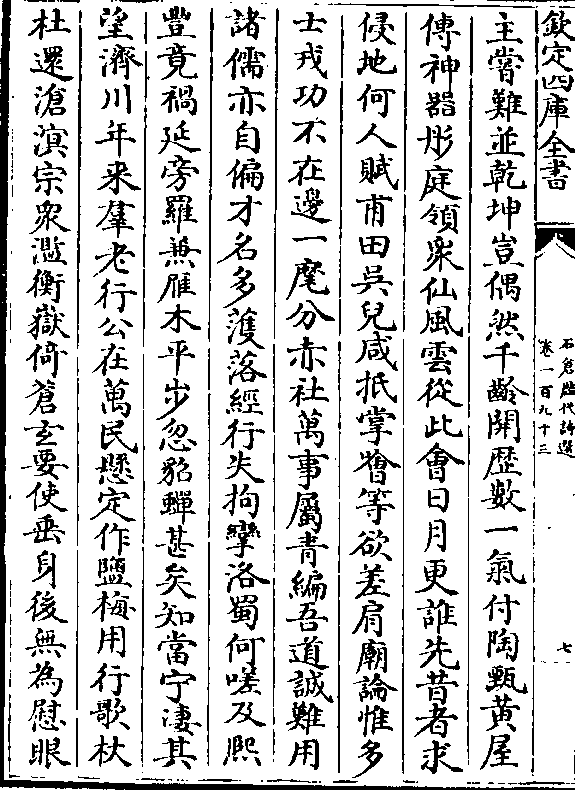 欽定四庫全書
石倉歴代詩選
卷一百九十三
七
主嘗難並乾坤豈偶然千齡開歴數一氣付陶甄黄屋
傳神器彤庭領衆仙風雲從此會日月更誰先昔者求
侵地何人賦甫田吳兒咸抵掌噲等欲差肩廟論惟多
士戎功不在邊一麾分赤社萬事屬青編吾道誠難用
諸儒亦自偏才名多濩落經行失拘攣洛蜀何嗟及熙
豐竟禍延旁羅兼雁木平步忽貂蟬甚矣知當宁淒其
望濟川年來羣老行公在萬民懸定作鹽梅用行歌杕
杜還滄溟宗衆濫衡嶽倚蒼玄要使垂身後無為慰眼